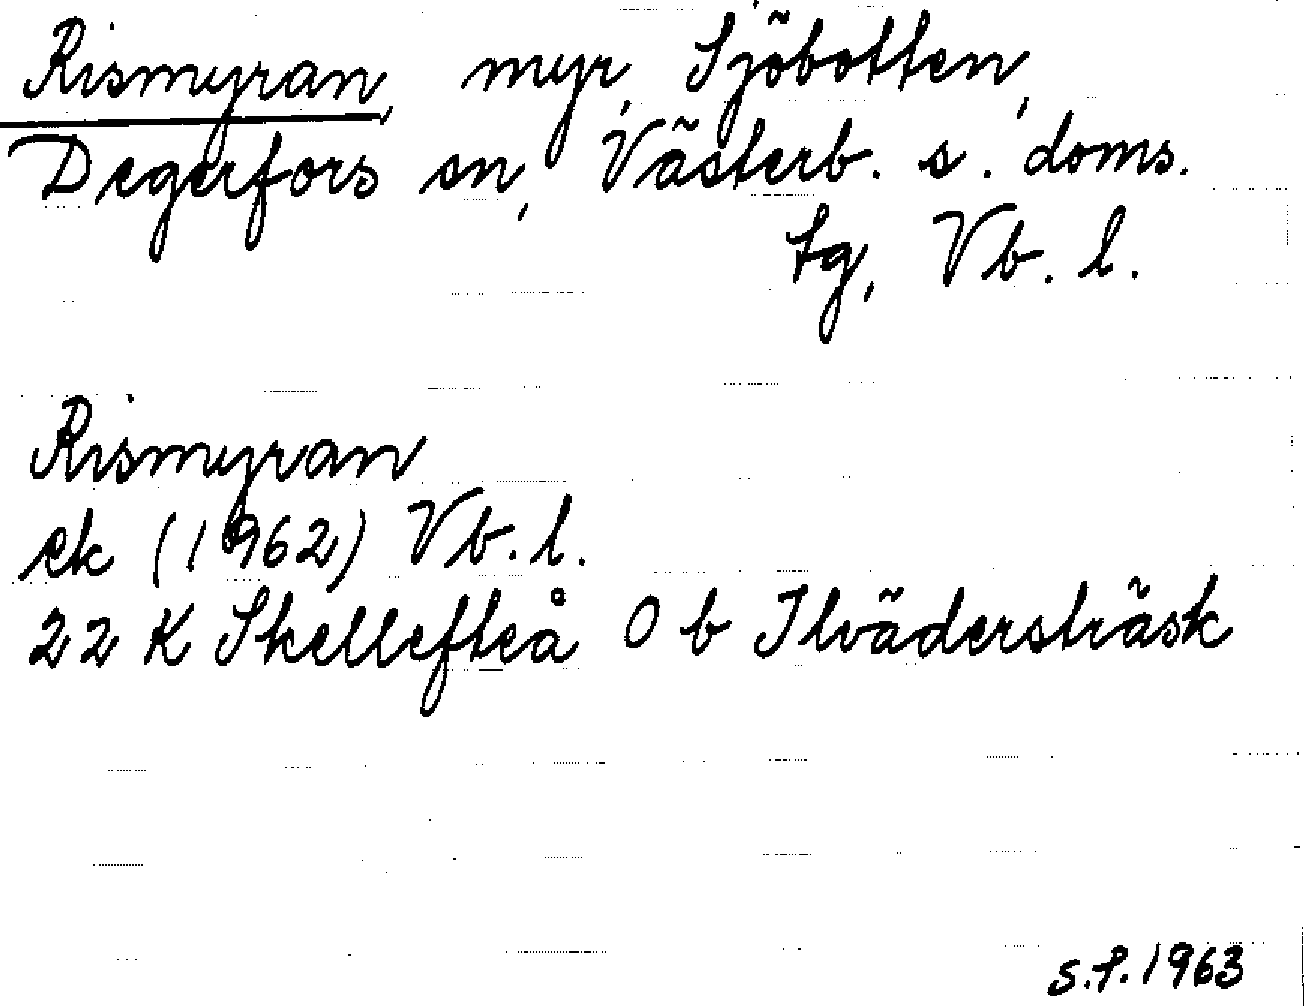 Rismyran, myr, Sjöbotten,
Degerfors sn, Västerb. s. doms.
tg, Vb. l.
Rismyran
ek (1962) Vb. l.
22 K Skellefteå 0 b Ilvädersträsk
S.P. 1963